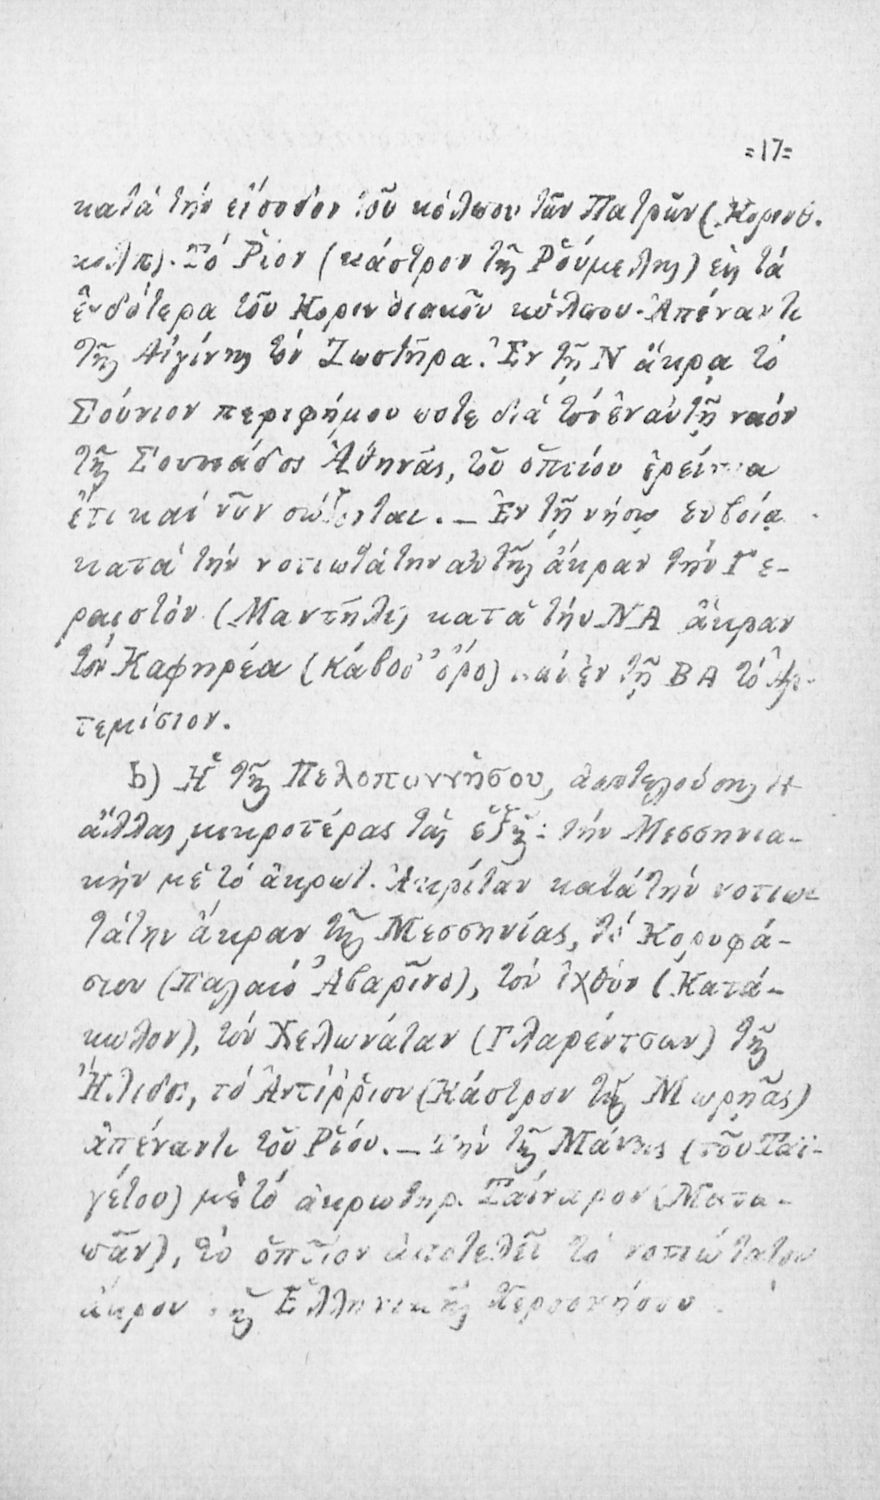 =17=
κατά τήν είσοδον τοῦ κόλπου τῶν Πατρῶν (Κορινθ.
κολπ). Τό Ῥίον (κάστρον τῆς Ῥούμελης) εἰς τά
ἐνδότερα τοῦ Κορινθιακοῦ κόλπου. Ἀπέναντι
τῆς Αἰγίνης τόν Ζωστῆρα. Ἐν τῇ Ν ἄκρᾳ τό
Σούνιον περιφήμου ποτε διά τόν ἐν αὐτῇ ναόν
τῆς Σουνιάδος Ἀθηνᾶς, τοῦ ὁποίου ἐρείπια
ἔτι καί νῦν σώζονται. — Ἐν τῇ νήσῳ Εὐβοίᾳ
κατά τήν νοτιωτάτην αὐτῆς ἄκραν τήν Γε-
ραιστόν (Μαντῆλι) κατά τήν ΝΑ ἄκραν
τόν Καφηρέα (Κάβοδ' ὄρο) καί ἐν τῇ ΒΑ τό Ἀρ-
τεμίσιον.
b) Ἡ τῆς Πελοποννήσου, ἀποτελούσης
ἄλλας μικροτέρας τάς ἑξῆς: τήν Μεσσηνια-
κήν μέ τό ἀκρωτ. Ἀκρίταν κατά τήν νοτιω-
τάτην ἄκραν τῆς Μεσσηνίας, τό Κορυφά-
σιον (Παλαιό Ἀβαρῖνο), τόν ἰχθύν (Κατά-
κωλον), τόν Χελωνάταν (Γλαρέντσαν) τῆς
Ἤλιδος, τό Ἀντίῤῥιον (Κάστρον τῆς Μωρηᾶς)
ἀπέναντι τοῦ Ῥίου. — Τήν τῆς Μάνης (τοῦ Ταϋ-
γέτου) μέ τό ἀκρωτηρ. Ταίναρον (Ματα-
πᾶν), τό ὁποῖον ἀποτελεῖ τό νοτιώτατον
ἄκρον τῆς Ἑλληνικῆς Χερσονήσου.